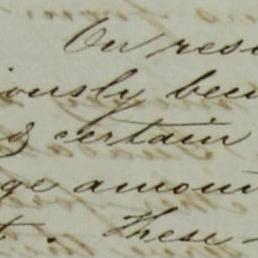 On rese
iously been
& certain
ge amoun
t. These